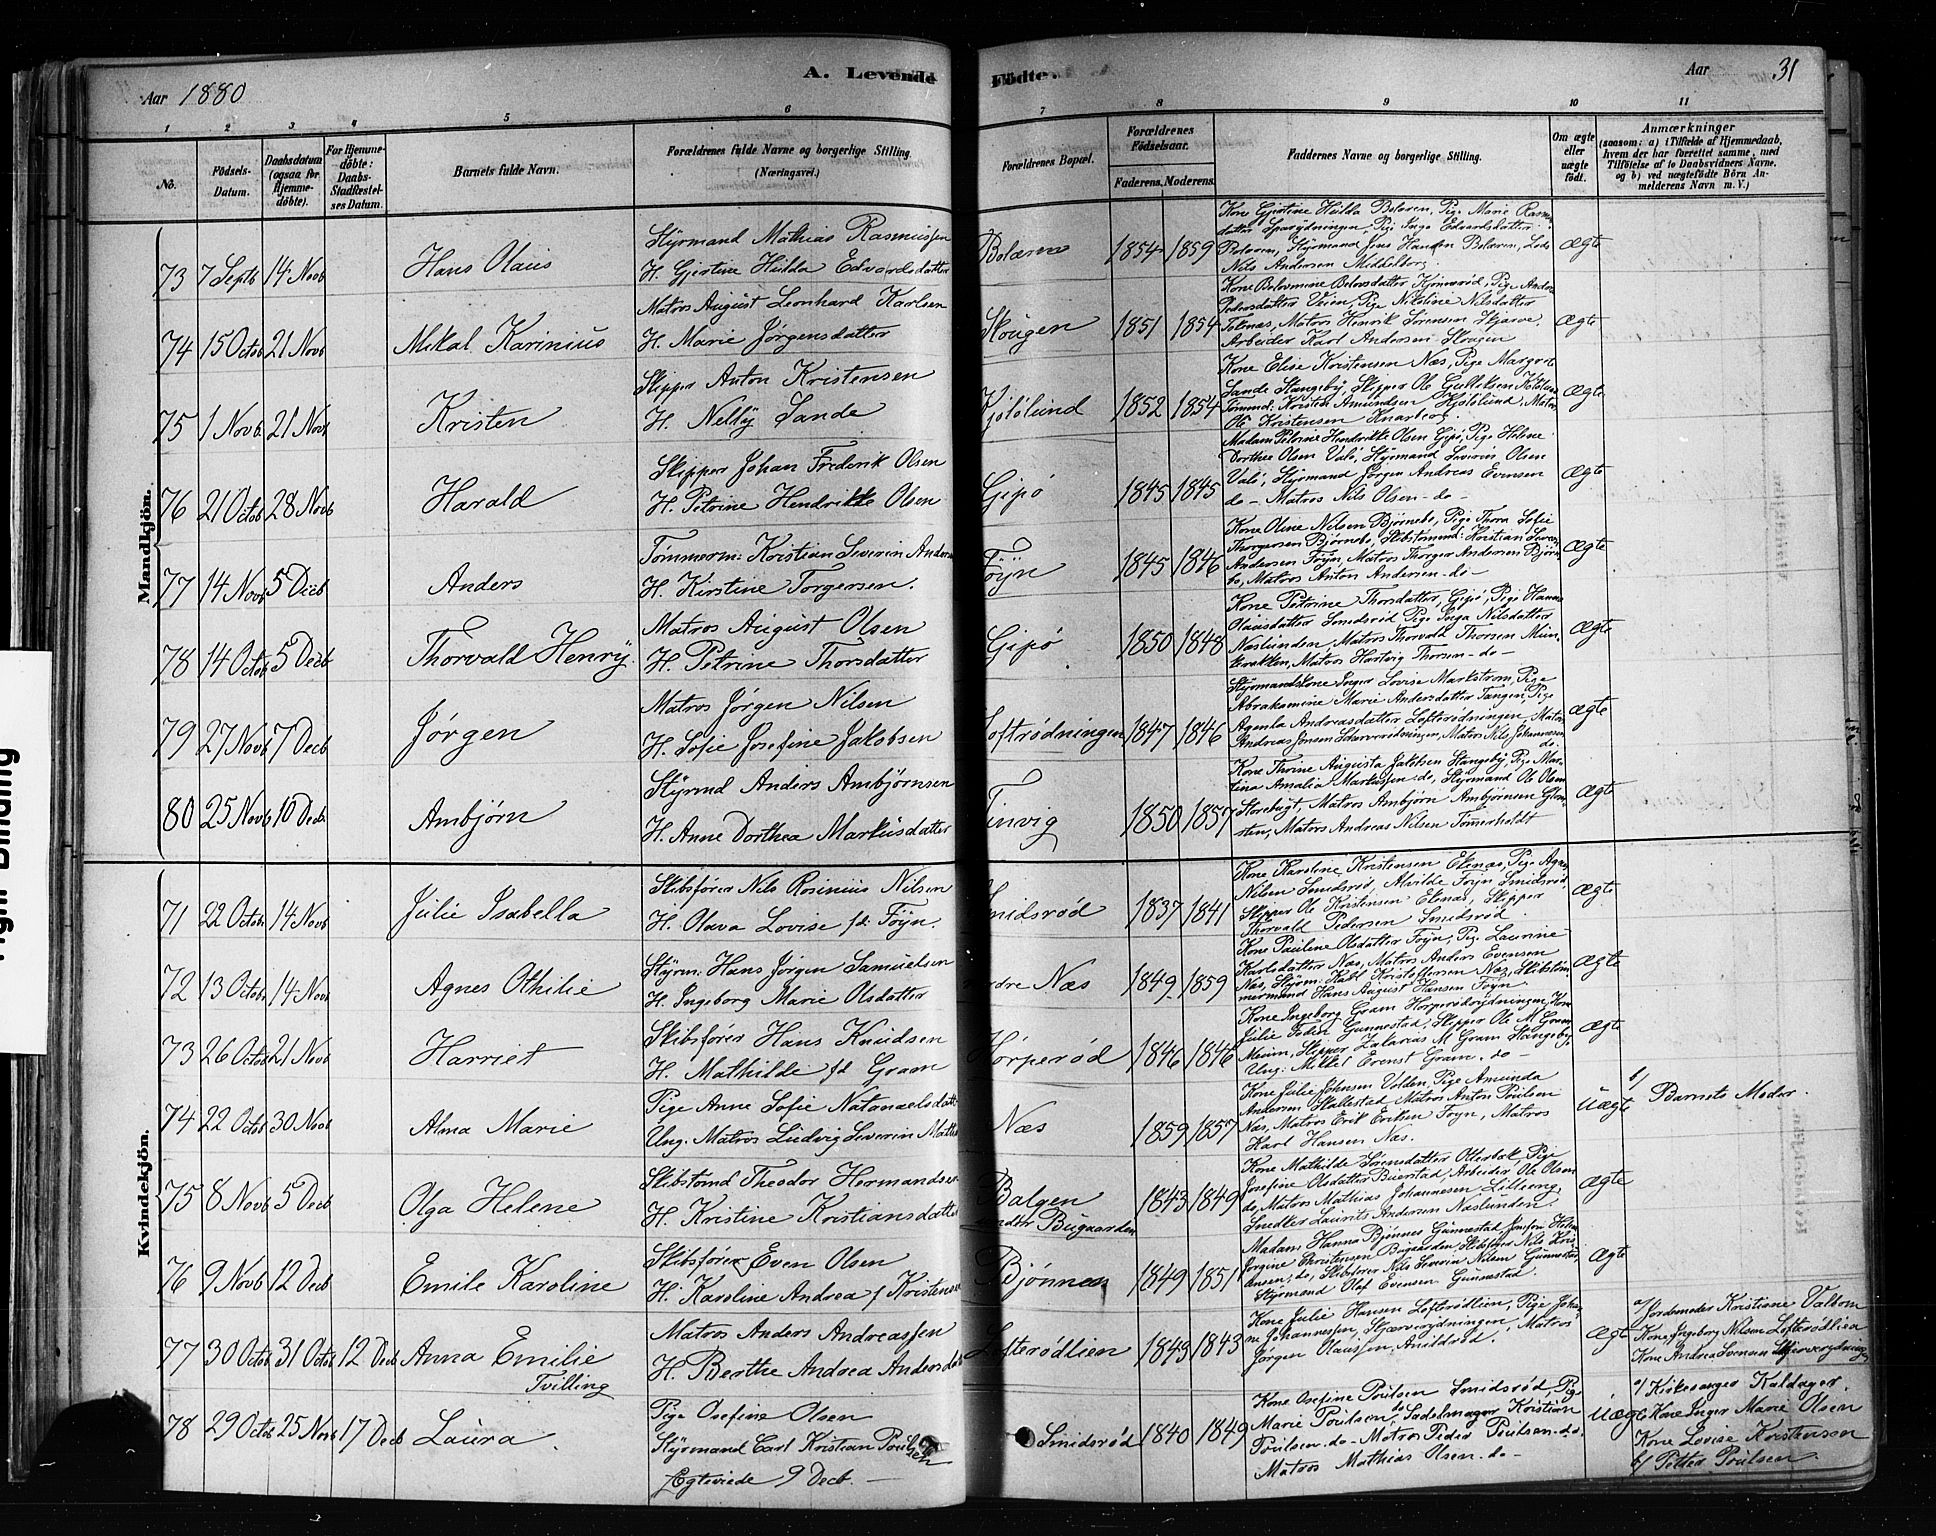 Aar 1880
A. Levende
Fødte.
Aar
31
1 2 3 4 5 6 7 8 9 10 11
No.
Födsels-Datum.
Daabsdatum (ogsaa for Hjemme-döbte).
For Hjemme-döbte: Daabs-Stadfæstel-ses Datum.
Barnets fulde Navn.
Forældrenes fulde Navne og borgerlige Stilling. (Næringsvei.)
Forældrenes Bopæl.
Forældrenes Födselsaar.
Faderens. Moderens.
Faddernes Navne og borgerlige Stilling.
Om ægte eller uægte födt.
Anmærkninger
(saasom: a) i Tilfælde af Hjemmedaab, hvem der har forrettet samme, med Tilföielse af to Daabsvidners Navne, og b) ved uægtefödte Börn Anmelderens Navn m. V.)
Mandkjön.
73 7 Septb 14 Novb Hans Olaus
Styrmand Mathias Rasmussen
H. Gjertine Hulda Edvardsdatter
Bolærne 1854 1859
Kone Gjertine Hulda Bolæren, Pige Marie Rasmus
datter, Pige Inga Edvardsdatter
Bolæren, Styrmand Jens Hansen Bolæren, Lods
Nils Andersen Middelborg.
Ægte
74 15 Octob 21 Novb Mikal Karinius
Matros August Leonhard Karlsen
H. Marie Jørgensdatter
Skougen 1851 1854
Pedersdatter Veien, Pige Nilsine Nilsdatter
Matros Henrik Sørensen Skjærve,
Arbeider Karl Andersen Skougen
Ægte
75 1 Novb 21 Novb Kristen
Skipper Anton Kristensen
H. Nelly Sande
Kjølølund 1852 1854
Kone Elise Kristensen Næs, Pige Margret
Sande Stangeby, Skipper Ole Gulliksen
Tømmd: Kristen Amundsen Kjølølund, Matros
Ole Kristensen Knarberg.
Ægte
76 21 Octob 28 Novb Harald
Skipper Johan Frederik Olsen
H. Petrine Hendrikke Olsen
Gipø 1845 1845
Madam Petrine Hendrikke Olsen Gipø, Pige Helene
Dorthea Olsen Valø, Styrmand Severin Olsen
Valø, Styrmand Jørgen Andreas Evensen
do - Matros Nils Olsen - do -
Ægte
77 14 Novb 5 Decb Anders
Tømmerm: Kristian Severin Anders
H. Kirstine Torgersen.
Føyn 1845 1846
Kone Oline Nilsen Bjørnebo, Pige Thora Sofie
Thorgersen Bjørnebo, Skibstømmd: Kristian
Andersen Føyn, Matros Thorger Andersen Bjørne
bo, Matros Anton Andersen - do -
Ægte
78 14 Octob 5 Decb Thorvald Henry.
Matros August Olsen
H. Petrine Thorsdatter
Gipø 1850 1848
Kone Petrine Thorsdatter, Gipø, Pige Hanna
Olausdatter Smidsrød Pige Inga Nilsdatter
Næslunden, Matros Thorvald Thorsen Mun
kerekken, Matros Hartvig Thorsen - do -
Ægte
79 27 Novb 7 Decb Jørgen
Matros Jørgen Nilsen
H. Sofie Josefine Jakobsen
Loftrødningen 1847 1846
Styrmandskone Inger Lovise Markstrøm, Pige
Abrahamine Marie Andersdatter Tangen, Pige
Agenla Andreasdatter Lofterødningen, Matros
Andreas Jonsen Skjærverødningen, Matros Nils Johannesen
do.
Ægte
80 25 Novb 10 Decb. Ambjørn
Styrmd Anders Ambjørnsen
H. Anne Dorthea Markusdatter
Tinvig 1850 1857
Kone Thorine Augusta Jakobsen Stangeby, Pige Mar-
tina Amalia Markussen do, Styrmand Ole Olsen
Storebugt, Matros Ambjørn Ambjørnsen Glom
sten, Matros Andreas Nilsen Tømmerholdt
Ægte
Kvindekjön.
71 22 Octob. 14 Novb Julie Isabella
Skibsfører Nils Rosinius Nilsen
H. Olava Lovise fd: Føyn.
Smidsrød 1837 1841
Kone Karoline Kristensen Ekenæs, Pige Agnes
Nilsen Smidsrød, Alvilde Føyn Smidsrød,
Skipper Ole Kristensen Ekenæs, Skipper
Thorvald Pedersen Smidsrød
Ægte
72 13 Octob 14 Novb Agnes Othilie
Styrm: Hans Jørgen Samuelsen
H. Ingeborg Marie Olsdatter
Nordre Næs 1849 1859
Kone Pauline Olsdatter Føyn, Pige Laurine
Karlsdatter Næs, Matros Anders Evensen
Næs, Styrm: Karl Kristoffersen Næs, Skibstøm
mermand Hans August Hansen Føyn.
Ægte
73 26 Octob 21 Novb Harriet
Skibsfører Hans Knudsen
H. Mathilde fd Gram
Horperød 1846 1846
Kone Ingeborg Gram Horperødrydningen, Kone
Julie Foden Gunnestad, Skipper Ole M Gram
Meum, Skipper Zakarias M Gram Stangeby,
Ung: Mikkel Evenst Gram. do -
Ægte
74 22 Octob 30 Novb Alma Marie
Pige Anne Sofie Natanaelsdatt
Ung. Matros Ludvig Severin
Næs 1859 1857
Kone Julie Johnsen Volden, Pige Amunda
Andersen Skallestad Matros Anton Poulsen
Næs, Matros Erik Eriksen Føyn, Matros
Karl Hansen Næs.
Uægte
b/ Barnets Moder.
75 8 Novb 5 Decb Olga Helene
Skibstømd Theodor Hermandsen
H. Kristine Kristiansdatter
Balgen
under Bugaarden 1843 1849
Kone Mathilde Sørensdatter Otterbæk, Pige
Josefine Olsdatter Buerstad, Arbeider Ole Olsen
do, Matros Mathias Johannesen Lilleeng,
Snedker Laurits Andersen Næslunden.
Ægte
76 9 Novb 12 Decb Emile Karoline
Skibsfører Even Olsen
H. Karoline Andrea f Kristensen
Bjønnes 1849 1851
Madam Hanna Bjønnes Gunnestad, Jomfru Helene
Jørgine Christensen Bugaarden, Skibsfører Nils Kris
tensen, do, Skibsfører Nils Severin Nilsen Gunnestad,
Styrmand Olef Evensen Gunnestad.
Ægte
77 30 Octob 31 Octob 12 Decb Anna Emilie
Tvilling
Matros Anders Andreassen
H. Berthe Andrea Andersdatt
Lofterødlien 1843 1843
Kone Julie Hansen Lofterødlien, Pige Johan
ne Johannessen, Skjærverydningen, Matros
Jørgen Olaussen Arildsrød.
Ægte
a/ Jordemoder Kristiane Valbom
Kone Ingeborg Nilsen Lofterødlien
Kone Andrea Svensen Skjærverydning
78 29 Octob 25 Novb 17 Decb Laura.
Pige Osefine Olsen
Styrmand Carl Kristian Poulsen
Egteviede 9 Decb. -
Smidsrød 1840 1849
Kone Osefine Poulsen Smidsrød, Pige
Marie Poulsen, do Sadelmager Kristian
Poulsen. do - Matros Peder Poulsen. do,
Matros Mathias Olsen. do -
Uægte
a/ Kirkesanger Kaldager.
Kone Inger Marie Olsen
Kone Lovise Kristensen
b/ Petter Poulsen.